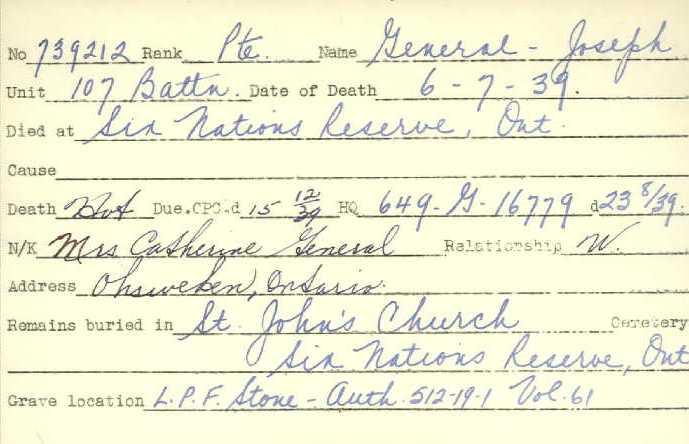 No 739212 Rank Pte. Name General - Joseph
Unit 107 Battn. Date of Death 6 - 7 - 39.
Died at Six Nations Reserve, Ont.
Cause
Death Not Due. CPC. d 15 12/39 HQ 649-G-16779 d 23 8/39.
N/K Mrs Catherine General Relationship W.
Address Ohsweken, Ontario.
Remains buried in St. John's Church Cemetery
Six Nations Reserve, Ont
Grave location L.P.F. Stone - Auth. 512-19-1 Vol. 61